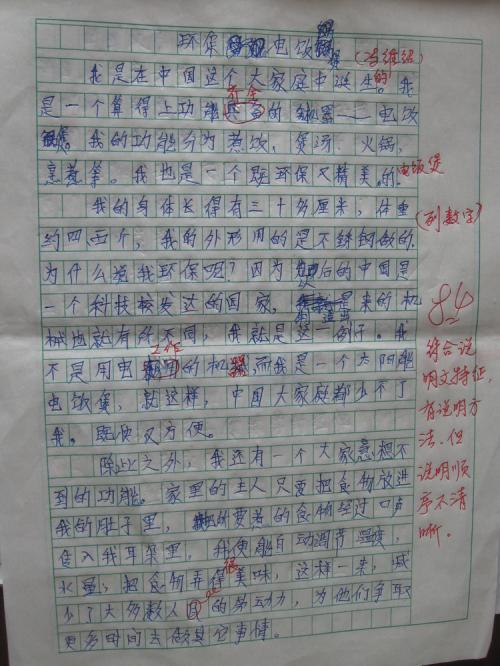 环保电饭煲
(冯维经)
我是在中国这个大家庭中诞生的。我
是一个算得上功能齐全的锅——电饭
煲。我的功能分为煮饭,煲汤,火锅,
烹煮等。我也是一个既环保又精美的电饭煲
我的身体长得有三十多厘米,体重(列数字)
约四五斤,我的外形用的是不锈钢做的.
为什么说我环保呢?因为后的中国是
一个科技较发达的国家,来的机
械也就有所不同,我就是这一例子。我
不是用电工作的机器而我是一个太阳能
电饭煲,就这样,中国大家庭都少不了
我。既便又方便。
除此之外,我还有一个大家意想不
到的功能。家里的主人只要把食物放进
我的肚子里,要煮的食物经过口声
传入我耳朵里,我便能自动调节温度,
水量,把食物弄得很美味,这样一来,减
少了大多数人的劳动力,为他们争取
更多时间去做其它事情。
84
符合说
明文特征,
有说明方
法.但
说明顺
序不清
晰。